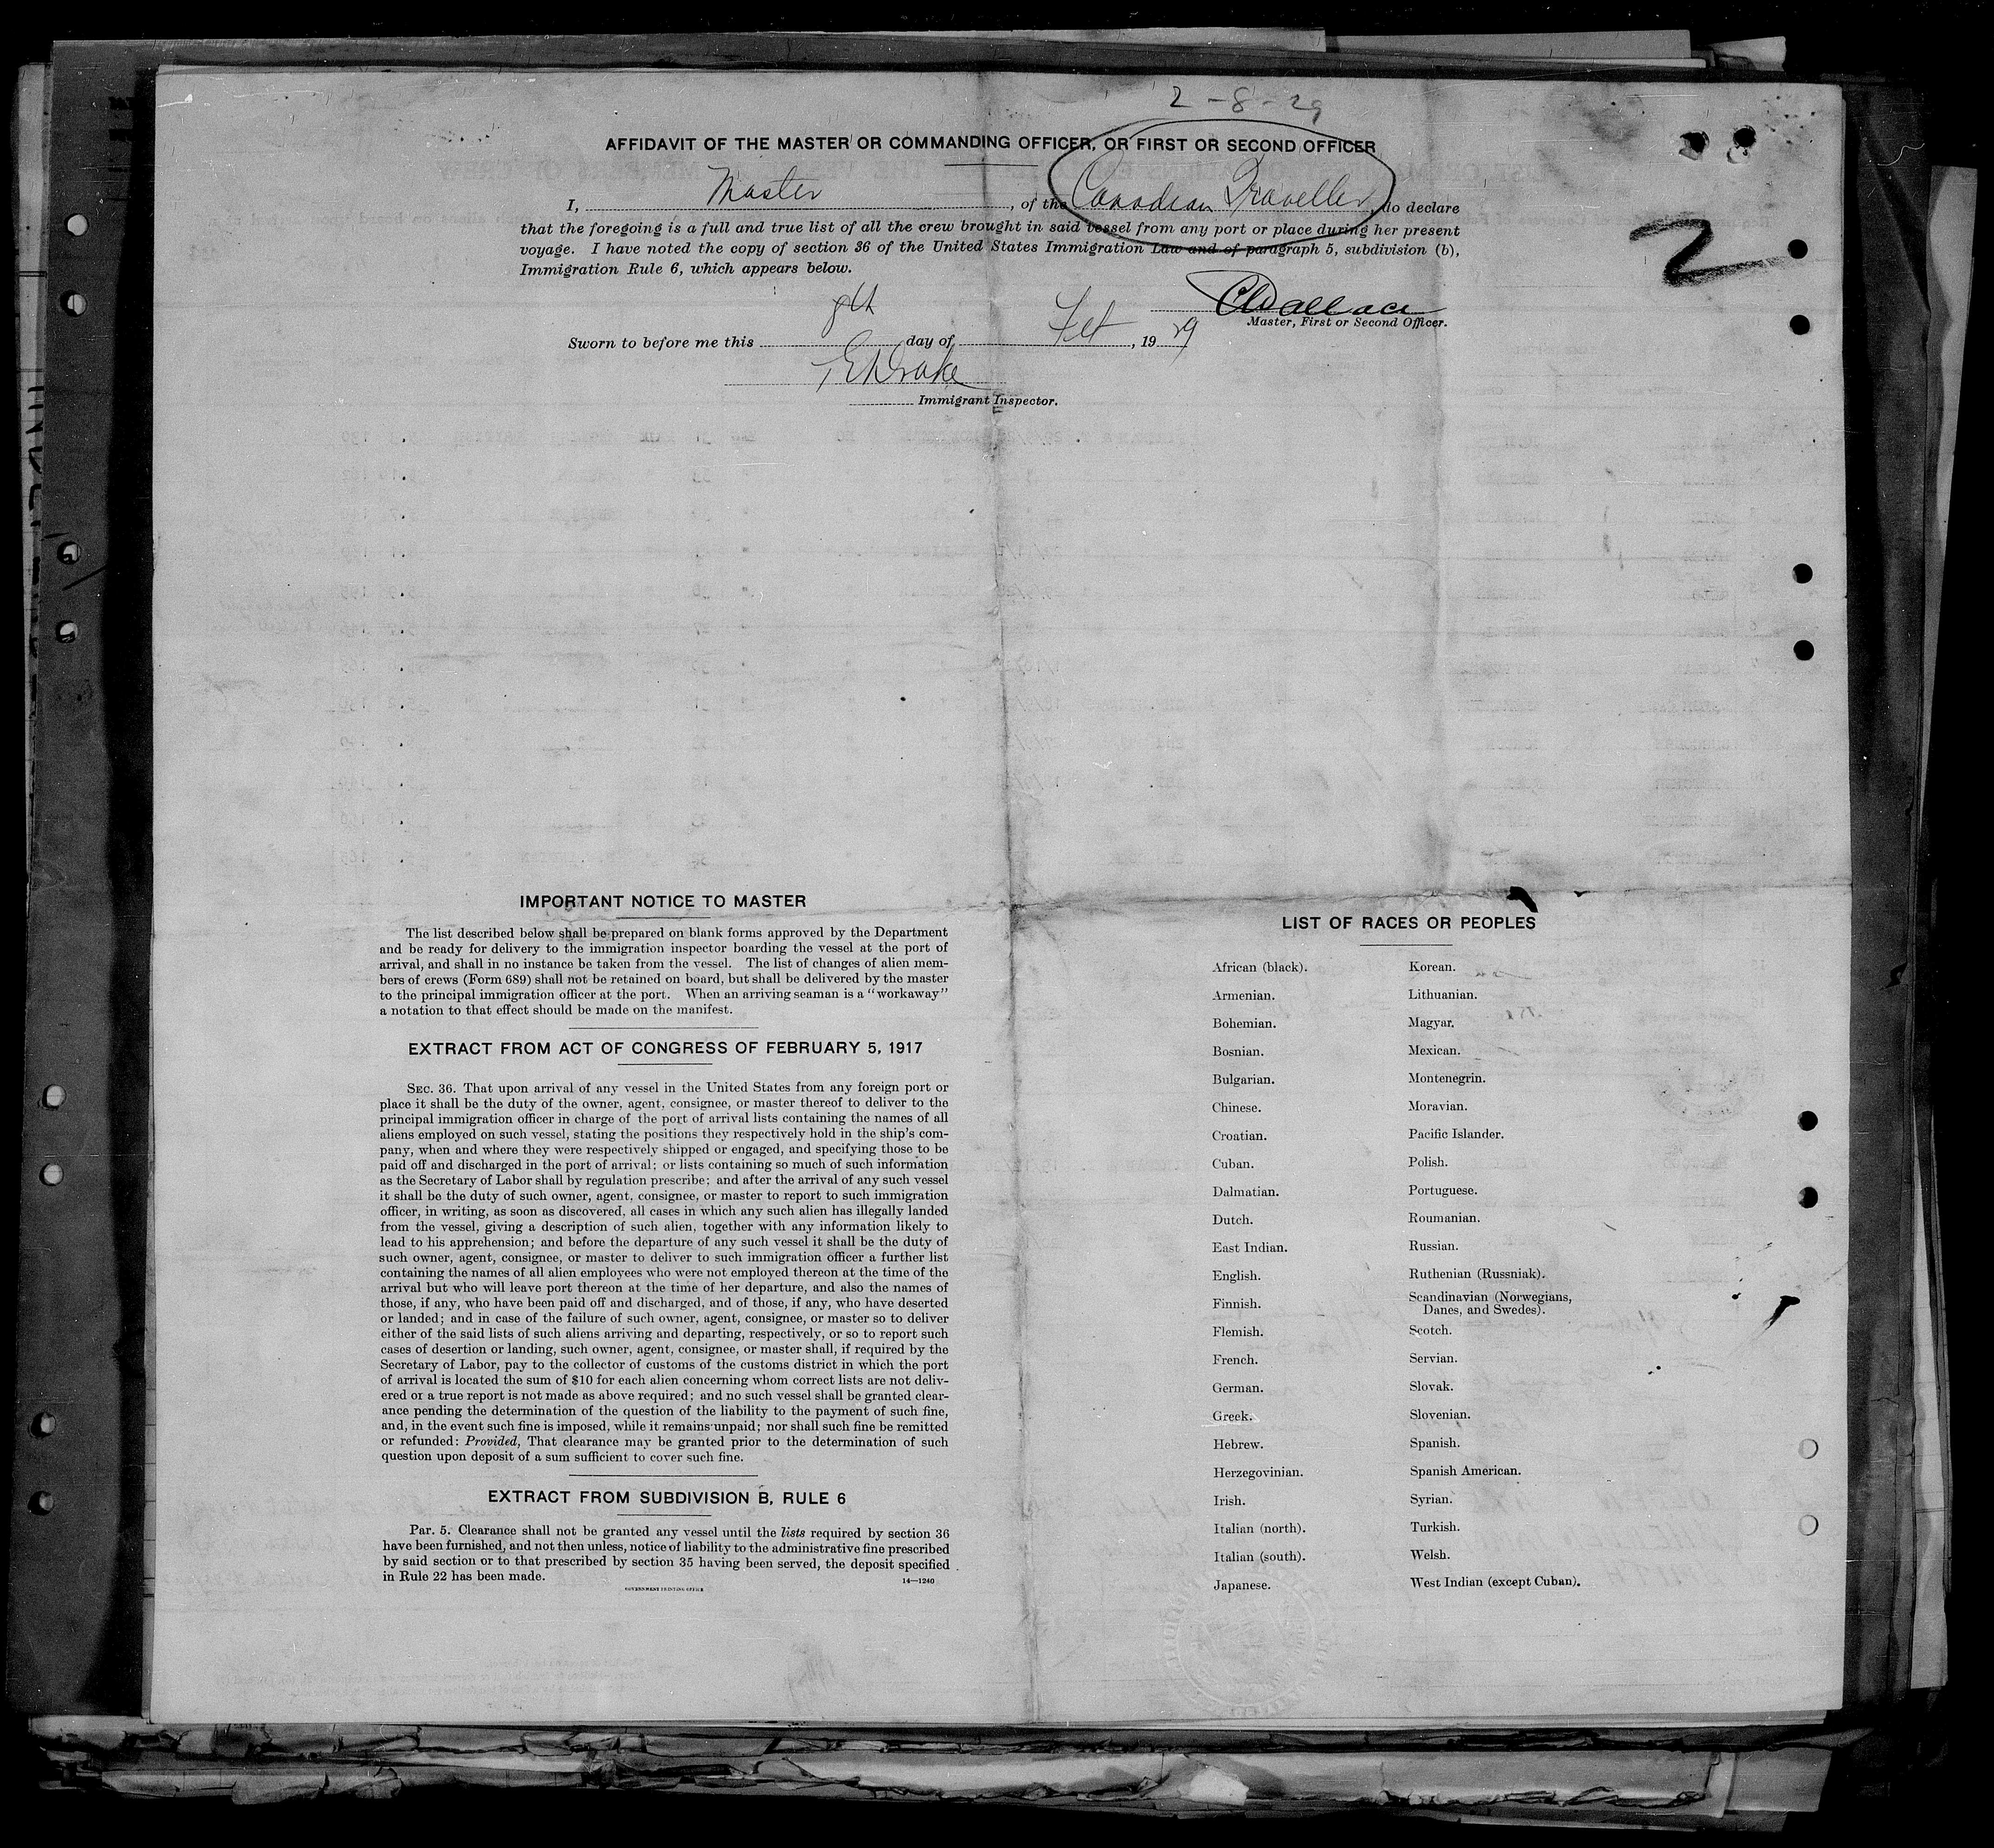 2-8-29
AFFIDAVIT OF THE MASTER OR COMMANDING OFFICER, OR FIRST OR SECOND OFFICER
I, Master, of the Canadian Traveller, do declare
that the foregoing is a full and true list of all the crew brought in said vessel from any port or place during her present
voyage. I have noted the copy of section 36 of the United States Immigration Law and of paragraph 5, subdivision (b),
Immigration Rule 6, which appears below.
2
CWallace
Master, First or Second Officer.
Sworn to before me this 8th day of Feb, 1929
Drake
Immigrant Inspector.
IMPORTANT NOTICE TO MASTER
The list described below shall be prepared on blank forms approved by the Department
and be ready for delivery to the immigration inspector boarding the vessel at the port of
arrival, and shall in no instance be taken from the vessel. The list of changes of alien mem-
bers of crews (Form 689) shall not be retained on board, but shall be delivered by the master
to the principal immigration officer at the port. When an arriving seaman is a "workaway"
a notation to that effect should be made on the manifest.
EXTRACT FROM ACT OF CONGRESS OF FEBRUARY 5, 1917
SEC. 36. That upon arrival of any vessel in the United States from any foreign port or
place it shall be the duty of the owner, agent, consignee, or master thereof to deliver to the
principal immigration officer in charge of the port of arrival lists containing the names of all
aliens employed on such vessel, stating the positions they respectively hold in the ship's com-
pany, when and where they were respectively shipped or engaged, and specifying those to be
paid off and discharged in the port of arrival; or lists containing so much of such information
as the Secretary of Labor shall by regulation prescribe; and after the arrival of any such vessel
it shall be the duty of such owner, agent, consignee, or master to report to such immigration
officer, in writing, as soon as discovered, all cases in which any such alien has illegally landed
from the vessel, giving a description of such alien, together with any information likely to
lead to his apprehension; and before the departure of any such vessel it shall be the duty of
such owner, agent, consignee, or master to deliver to such immigration officer a further list
containing the names of all alien employees who were not employed thereon at the time of the
arrival but who will leave port thereon at the time of her departure, and also the names of
those, if any, who have been paid off and discharged, and of those, if any, who have deserted
or landed; and in case of the failure of such owner, agent, consignee, or master so to deliver
either of the said lists of such aliens arriving and departing, respectively, or so to report such
cases of desertion or landing, such owner, agent, consignee, or master shall, if required by the
Secretary of Labor, pay to the collector of customs of the customs district in which the port
of arrival is located the sum of $10 for each alien concerning whom correct lists are not deliv-
ered or a true report is not made as above required; and no such vessel shall be granted clear-
ance pending the determination of the question of the liability to the payment of such fine,
and, in the event such fine is imposed, while it remains unpaid; nor shall such fine be remitted
or refunded: Provided, That clearance may be granted prior to the determination of such
question upon deposit of a sum sufficient to cover such fine.
EXTRACT FROM SUBDIVISION B, RULE 6
Par. 5. Clearance shall not be granted any vessel until the lists required by section 36
have been furnished, and not then unless, notice of liability to the administrative fine prescribed
by said section or to that prescribed by section 35 having been served, the deposit specified
in Rule 22 has been made.
GOVERNMENT PRINTING OFFICE
14—1240
LIST OF RACES OR PEOPLES
African (black).
Armenian.
Bohemian.
Bosnian.
Bulgarian.
Chinese.
Croatian.
Cuban.
Dalmatian.
Dutch.
East Indian.
English.
Finnish.
Flemish.
French.
German.
Greek.
Hebrew.
Herzegovinian.
Irish.
Italian (north).
Italian (south).
Japanese.
Korean.
Lithuanian.
Magyar.
Mexican.
Montenegrin.
Moravian.
Pacific Islander.
Polish.
Portuguese.
Roumanian.
Russian.
Ruthenian (Russniak).
Scandinavian (Norwegians,
Danes, and Swedes).
Scotch.
Servian.
Slovak.
Slovenian.
Spanish.
Spanish American.
Syrian.
Turkish.
Welsh.
West Indian (except Cuban).